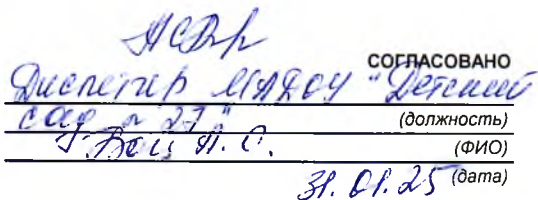 СОГЛАСОВАНО
Диспетчер МАДОУ "Детский
сад № 27"
(должность)
А. С.
(ФИО)
31.01.25 (дата)